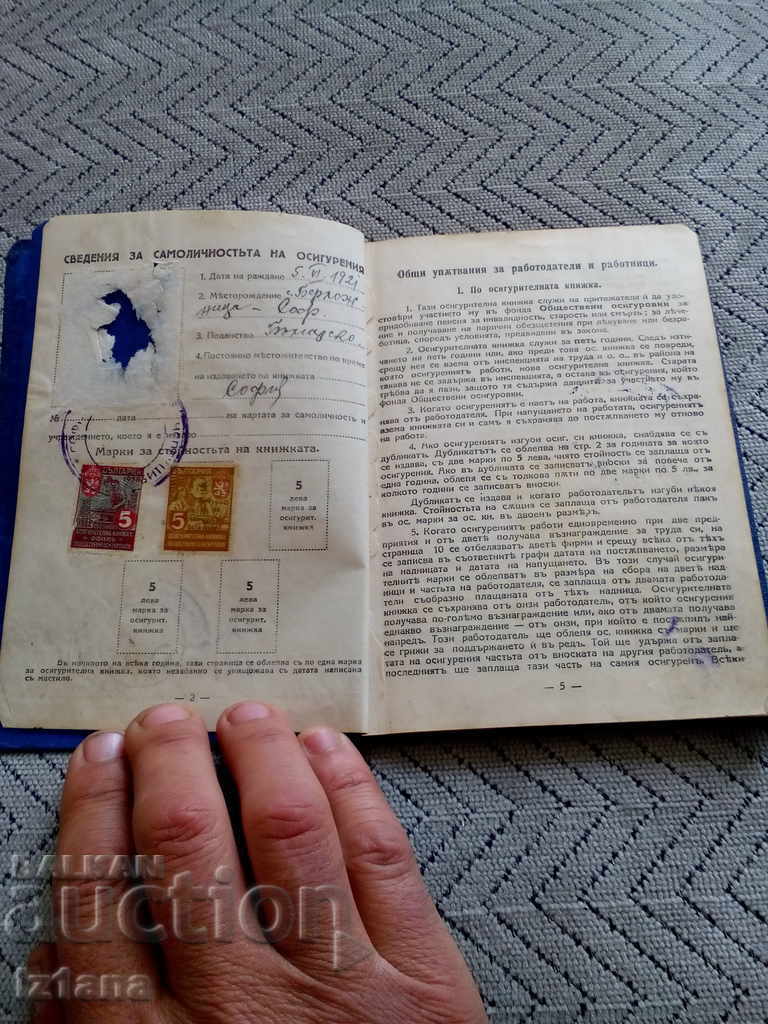 СВЕДЕНИЯ ЗА САМОЛИЧНОСТЬТА НА ОСИГУРЕНИЯ
1. Дата на раждане 5. VI 1921
2. Мѣсторождение
Соф
3. Поданство
4. Постоянно мѣстожителство по време
на издаването на книжката
София
№ дата на картата за самоличность и
учреждението, което я е
Марки за стойностьта на книжката.
БЪЛГАРИЯ
5
ОСИГУРИТЕЛНА КНИЖКА
5
5
лева
марка за
осигурит.
книжка
5
лева
марка за
осигурит.
книжка
5
лева
марка за
осигурит.
книжка
Въ началото на всѣка година, тази страница се облепва съ по една марка
за осигурителна книжка, която незабавно се унищожава съ датата написана
съ мастило.
— 2 —
Общи упѫтвания за работодатели и работници.
1. По осигурителната книжка.
1. Тази осигурителна книжка служи на притежателя ѝ да удо-
стовѣри участието му въ фонда Обществени осигуровки за
придобиване пенсия за инвалидность, старость или смърть; за лѣче-
ние и получаване на парични обезщетения при лѣкуване или безра-
ботица, споредъ условията, предвидени въ закона.
2. Осигурителната книжка служи за петь години. Следъ изти-
чането на петь години или, ако преди това ос. книжка се повреди,
срещу нея се взема отъ инспекцията на труда и о. о., въ района на
която осигурениятъ работи, нова осигурителна книжка. Старата
такава не се задържа въ инспекцията, а остава въ осигурения, който
трѣбва да я пази, защото тя съдържа за участието му въ
фонда Обществени осигуровки.
3. Когато осигурениятъ е наетъ на работа, книжката се съхра-
нява отъ работодателя. При напущането на работата, осигурениятъ
взема книжката си и самъ я съхранява до постѫпването му отново
на работа.
4. Ако осигурениятъ изгуби осиг. си книжка, снабдява се съ
дубликатъ. Дубликатътъ се облепва на стр. 2 за годината за която
се издава, съ две марки по 5 лева, чиято стойность се заплаща отъ
осигурения. Ако въ дубликата се записватъ вноски за повече отъ
една година, облепя се съ толкова пѫти по две марки по 5 лв., за
колкото години се записватъ вноски.
Дубликатъ се издава и когато работодательтъ изгуби нѣкоя
книжка. Стойностьта на сѫщия се заплаща отъ работодателя пакъ
въ ос. марки за ос. кн. въ двоенъ размѣръ.
5. Когато осигурениятъ работи едновременно при две пред-
приятия и отъ двете получава възнаграждение за труда си, на
страница 10 се отбелязватъ дветѣ фирми и срещу всѣка отъ тѣхъ
се записва въ съответните графи датата на постѫпването, размѣра
на надницата и датата на напущането. Въ този случай осигури-
телнитѣ марки се облепватъ въ размѣра на сбора на дветѣ над-
ници и частьта на работодателя, се заплаща отъ двамата работода-
тели съобразно плащаната отъ тѣхъ надница. Осигурителната
книжка се съхранява отъ онзи работодатель, отъ който осигурения
получава по-голѣмо възнаграждение или, ако отъ двамата получава
еднакво възнаграждение — отъ онзи, при който е постѫпилъ най-
напредъ. Този работодатель ще облепя ос. книжка съ марки и ще
се грижи за поддържането ѝ въ редъ. Той ще удържа отъ запла-
тата на осигурения частьта отъ вноската на другия работодатель, а
последниятъ ще заплаща тази часть на самия осигуренъ. Всѣки
— 5 —
BALKAN
auction
iz1ana